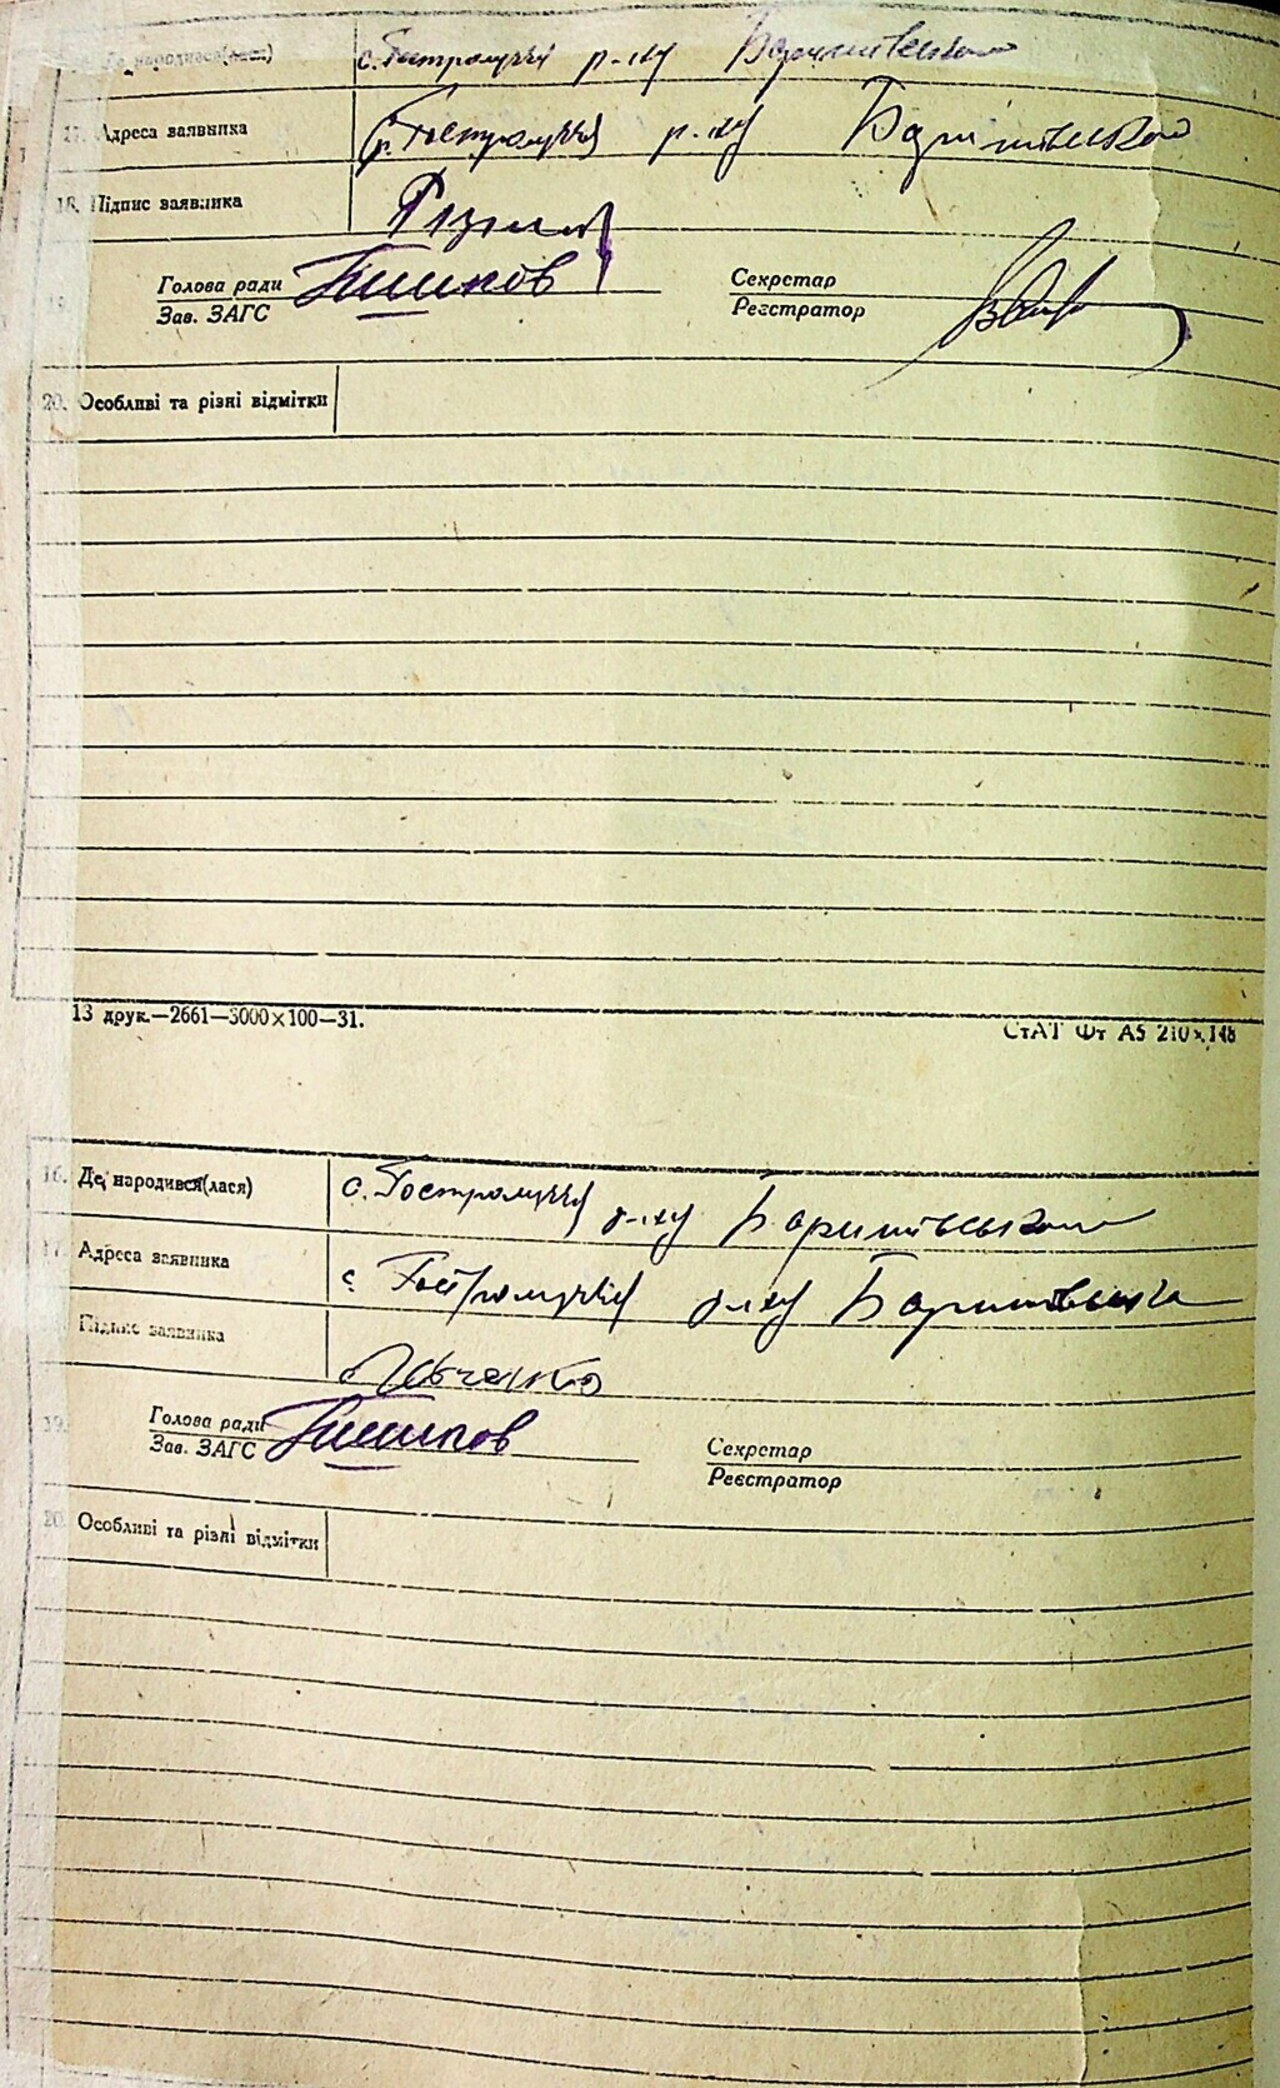 Де народився(лася) с. Гостролуччя р-ну Баришівського
17. Адреса заявника с. Гостролуччя р-ну Баришівського
18. Підпис заявника
Голова ради Секретар
Зав. ЗАГС Реєстратор
20. Особливі та різні відмітки
13 друк.—2661—3000×100—31. СтАТ Фт А5 210×148
16. Де народився(лася) с. Гостролуччя р-ну Баришівського
17. Адреса заявника с. Гостролуччя р-ну Баришівського
Підпис заявника
19. Голова ради Секретар
Зав. ЗАГС Реєстратор
20. Особливі та різні відмітки